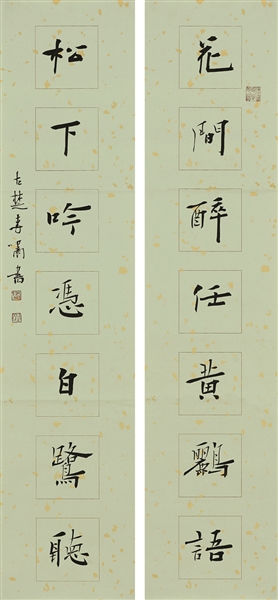 花間醉任黃鸝語
松下吟憑白鷺聽
古楚書